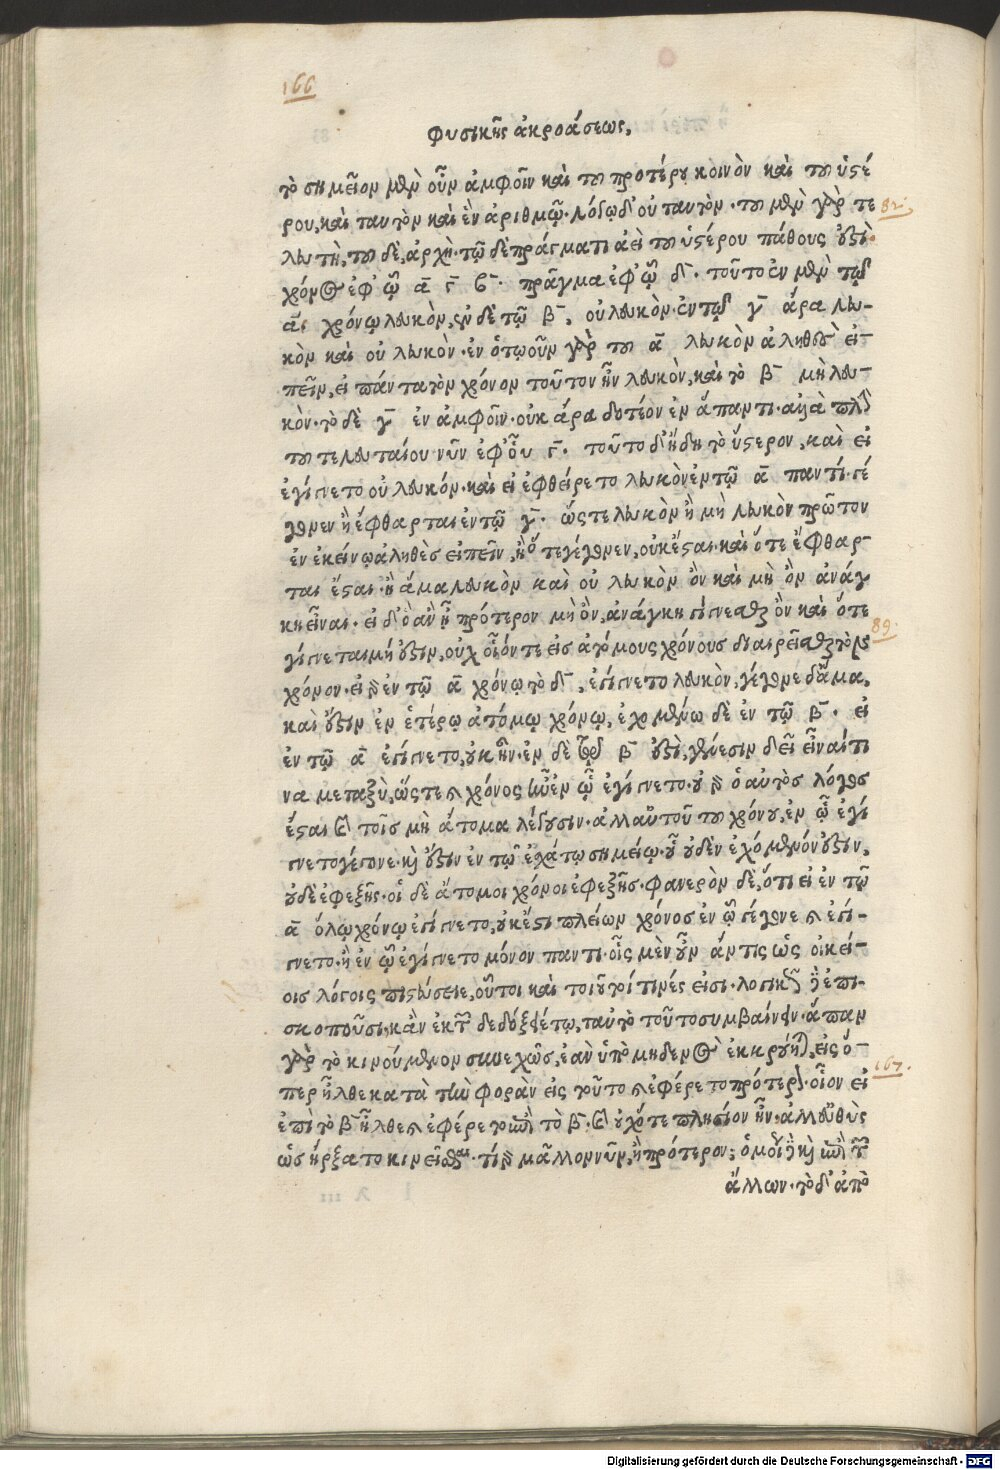 166
φυσικῆς ἀκροάσεως.
τὸ σημεῖον μὲν οὖν ἀμφοῖν καὶ τοῦ προτέρου κοινὸν καὶ τοῦ ὑστέ
ρου, καὶ ταυτὸν καὶ ἓν ἀριθμῷ. λόγῳ δ' οὐ ταυτὸν. τοῦ μὲν γὰρ τε
λευτὴ, τοῦ δὲ, ἀρχὴ. τῷ δὲ πράγματι ἀεὶ τοῦ ὑστέρου πάθους ἐστὶ.
χρόνος ἐφ' ᾧ α γ β. πρᾶγμα ἐφ' ᾧ δ. τοῦτο ἐν μὲν τῷ
α χρόνῳ λευκὸν, ἐν δὲ τῷ β, οὐ λευκὸν. ἐν τῷ γ ἄρα λευ-
κὸν καὶ οὐ λευκὸν. ἐν ὁτῳοῦν γὰρ τοῦ α λευκὸν ἀληθὲς εἰ-
πεῖν, εἰ πάντα τὸν χρόνον τοῦτον ἦν λευκὸν, καὶ τὸ β μὴ λευ-
κὸν. τὸ δὲ γ ἐν ἀμφοῖν. οὐκ ἄρα δοτέον ἐν ἅπαντι. ἀλλὰ πλὴν
τοῦ τελευταίου νῦν ἐφ' οὗ γ. τοῦτο δ' ἤδη τὸ ὕστερον, καὶ εἰ
ἐγίγνετο οὐ λευκόν. καὶ εἰ ἐφθείρετο λευκὸν ἐν τῷ α παντί. γέ
γονεν ἢ ἔφθαρται ἐν τῷ γ. ὥστε λευκὸν ἢ μὴ λευκὸν πρῶτον
ἐν ἐκείνῳ ἀληθὲς εἰπεῖν, ἢ ὅτε γέγονεν, οὐκ ἔσται. καὶ ὅτε ἔφθαρ-
ται ἔσται. ἢ ἅμα λευκὸν καὶ οὐ λευκὸν ὂν καὶ μὴ ὂν ἀνάγ
κη εἶναι. εἰ δ' ὃ ἂν ᾖ πρότερον μὴ ὂν, ἀνάγκη γίγνεσθαι ὂν καὶ ὅτε
γίγνεται μή ἐστιν, οὐχ οἷόν τε εἰς ἀτόμους χρόνους διαιρεῖσθαι τὸν
χρόνον. εἰ γὰρ ἐν τῷ α χρόνῳ τὸ δ, ἐγίγνετο λευκὸν, γέγονε δ' ἅμα,
καὶ ἔστιν ἐν ἑτέρῳ ἀτόμῳ χρόνῳ, ἐχομένῳ δὲ ἐν τῷ β. εἰ
ἐν τῷ α ἐγίγνετο, οὐκ ἦν. ἐν δὲ τῷ β ἐστὶ, γένεσιν δεῖ εἶναί τι
να μεταξὺ, ὥστε καὶ χρόνος ἦν ἐν ᾧ ἐγίγνετο. οὐ γὰρ ὁ αὐτὸς λόγος
ἔσται καὶ τοῖς μὴ ἄτομα λέγουσιν. ἀλλ' αὐτοῦ τοῦ χρόνου, ἐν ᾧ ἐγί
γνετο γέγονε. καὶ ἔστιν ἐν τῷ ἐσχάτῳ σημείῳ. οὗ οὐδὲν ἐχόμενόν ἐστιν,
οὐδὲ ἐφεξῆς. οἱ δὲ ἄτομοι χρόνοι ἐφεξῆς. φανερὸν δὲ, ὅτι εἰ ἐν τῷ
α ὅλῳ χρόνῳ ἐγίγνετο, οὐκ ἔστι πλείων χρόνος ἐν ᾧ γέγονε καὶ ἐγί-
γνετο. ἢ ἐν ᾧ ἐγίγνετο μόνον παντί. οἷς μὲν οὖν ἄν τις ὡς οἰκεί-
οις λόγοις πιστεύσειε, οὗτοι καὶ τοιοῦτοί τινές εἰσι. λογικῶς δὲ ἐπι-
σκοποῦσι, κἂν ἐκ τῶνδε δόξειέ τῳ, ταὐτὸ τοῦτο συμβαίνειν. ἅπαν
γὰρ τὸ κινούμενον συνεχῶς, ἐὰν ὑπὸ μηδενὸς ἐκκρούηται, εἰς ὅ-
περ ἦλθε κατὰ τὴν φορὰν εἰς τοῦτο καὶ ἐφέρετο πρότερον. οἷον εἰ
ἐπὶ τὸ β ἦλθε καὶ ἐφέρετο ἐπὶ τὸ β. καὶ οὐχ ὅτε πλησίον ἦν. ἀλλ' εὐθὺς
ὡς ἤρξατο κινεῖσθαι. τί γὰρ μᾶλλον νῦν, ἢ πρότερον; ὁμοίως δὲ καὶ ἐπὶ τῶν
ἄλλων. τὸ δ' ἀπὸ
89.
167.
Digitalisierung gefördert durch die Deutsche Forschungsgemeinschaft - DFG